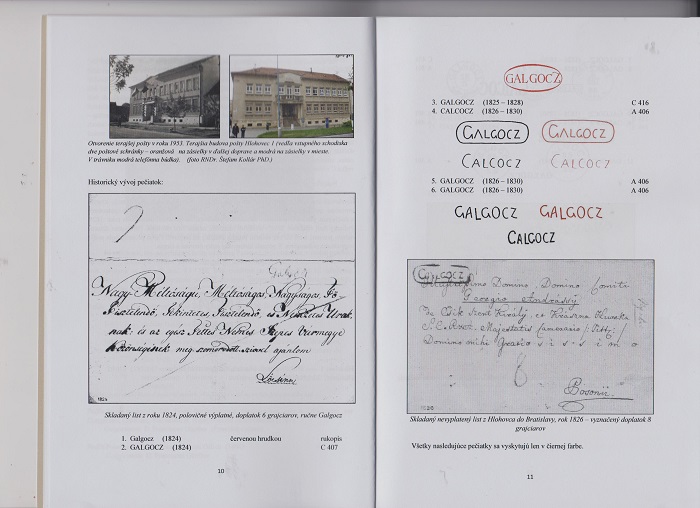 Otvorenie terajšej pošty v roku 1933. Terajšia budova pošty Hlohovec 1 (vedľa vstupného schodiska
dve poštové schránky – oranžová na zásielky v ďalšej doprave a modrá na zásielky v meste.
V trávniku modrá telefónna búdka). (foto RNDr. Štefan Kollár PhD.)
Historický vývoj pečiatok:
Galgocz
Nagy Méltóságú, Méltóságos, Nagyságos, Fő
Tisztelendő, Tekintetes, Tisztelendő, és Nemzetes Urak
nak és az egész Tettes Nemes Szepes Vármegye
Közönségének meg ajánlom
1824
Skladaný list z roku 1824, polovičné výplatné, doplatok 6 grajciarov, ručne Galgocz
1. Galgocz (1824) červenou hrudkou rukopis
2. GALGOCZ (1824) C 407
10
GALGOCZ
3. GALGOCZ (1825 – 1828) C 416
4. CALCOCZ (1826 – 1830) A 406
GALGOCZ GALGOCZ
CALCOCZ CALCOCZ
5. GALGOCZ (1826 – 1830) A 406
6. GALGOCZ (1826 – 1830) A 406
GALGOCZ GALGOCZ
CALGOCZ
GALGOCZ
Domino, Domino Comiti
Georgio Andrássy
de Csik Szent Király, et Kraszna Horka
Majestatis Camerario
Domino mihi Gratiosissimo
6
Posonii
1826
Skladaný nevyplatený list z Hlohovca do Bratislavy, rok 1826 – vyznačený doplatok 8
grajciarov
Všetky nasledujúce pečiatky sa vyskytujú len v čiernej farbe.
11